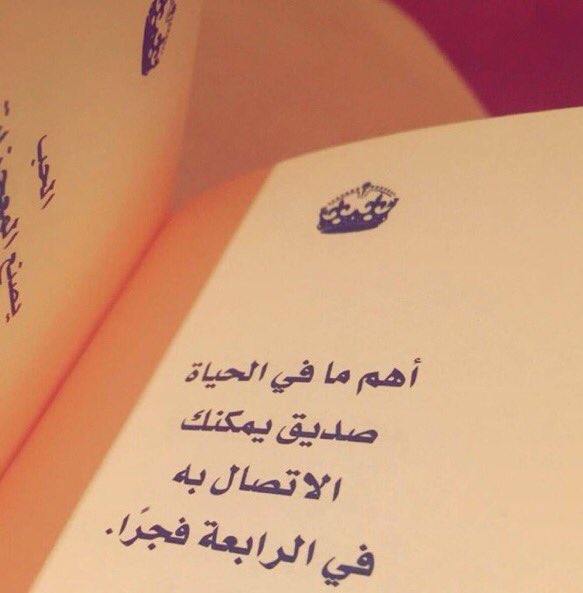 أهم ما في الحياة
صديق يمكنك
الاتصال به
في الرابعة فجرًا.
الحب
يصنع